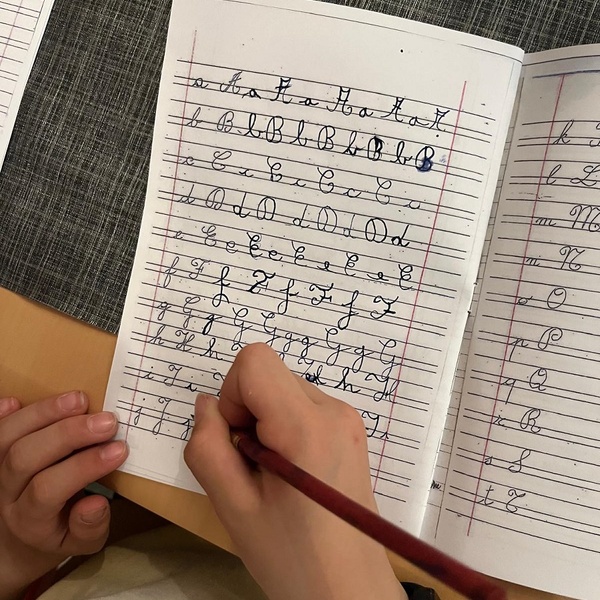 a A a A a A a A a A
b B b B b B b B b B
c C c C c C c C c
d D d D d D d D d
e E e E e E e E e E
f F f F f F f F
g G g G G g g G g G
h H h h H h
i I i I i
j J j
k
l L
m M
n N
o O
p P
q Q
r R
s S
t T